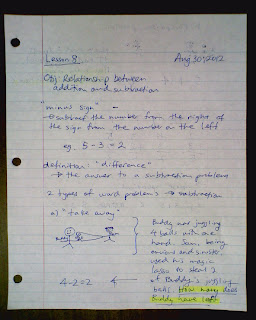 Lesson 8 Aug 30, 2012
Obj: Relationship between
addition and subtraction
"minus sign" -
→ subtract the number from the right of
the sign from the number on the left
eg. 5 - 3 = 2
definition: "difference"
→ the answer to a subtraction problem
2 types of word problems → subtraction
a) "take away"
Buddy was juggling
4 balls with one
hand. Sam, being
and sinister,
used his magic
lasso to steal 2
of Buddy's juggling
balls. How many does
Buddy have left
4-2=2 4